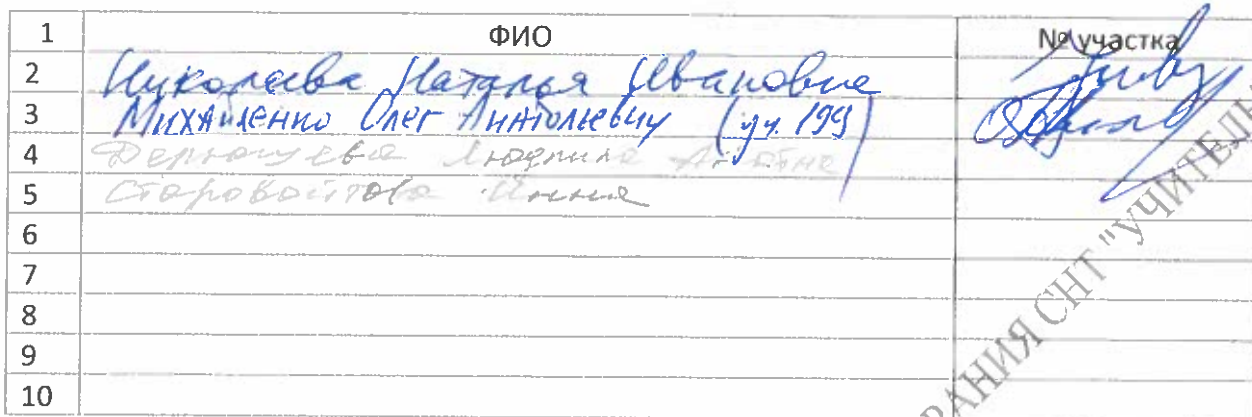 1 ФИО № участка
2 Николаева Наталья Ивановна
3 Михайленко Олег Анатольевич (уч. 199)
4 Людмила
5 Старовойтова Инна
6
7
8
9
10
РАНИЯ СНТ "УЧИТЕЛЬ